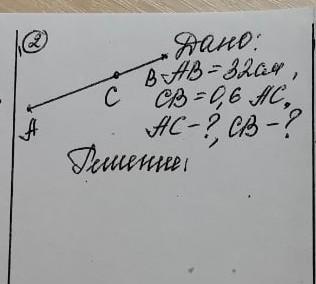 2
Дано:
AB = 32 см,
CB = 0,6 AC,
AC - ?, CB - ?
A C B
Решение: